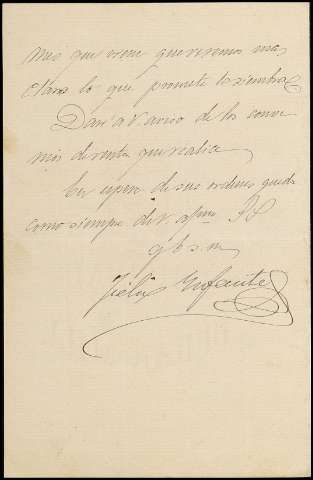 mes que viene queveremos mas
claro lo que promete la siembra
Daré a V. aviso de los conve
nios de venta que realice
En espera de sus ordenes queda
como siempre de V. afmo
q b s m
Felix Ynfante